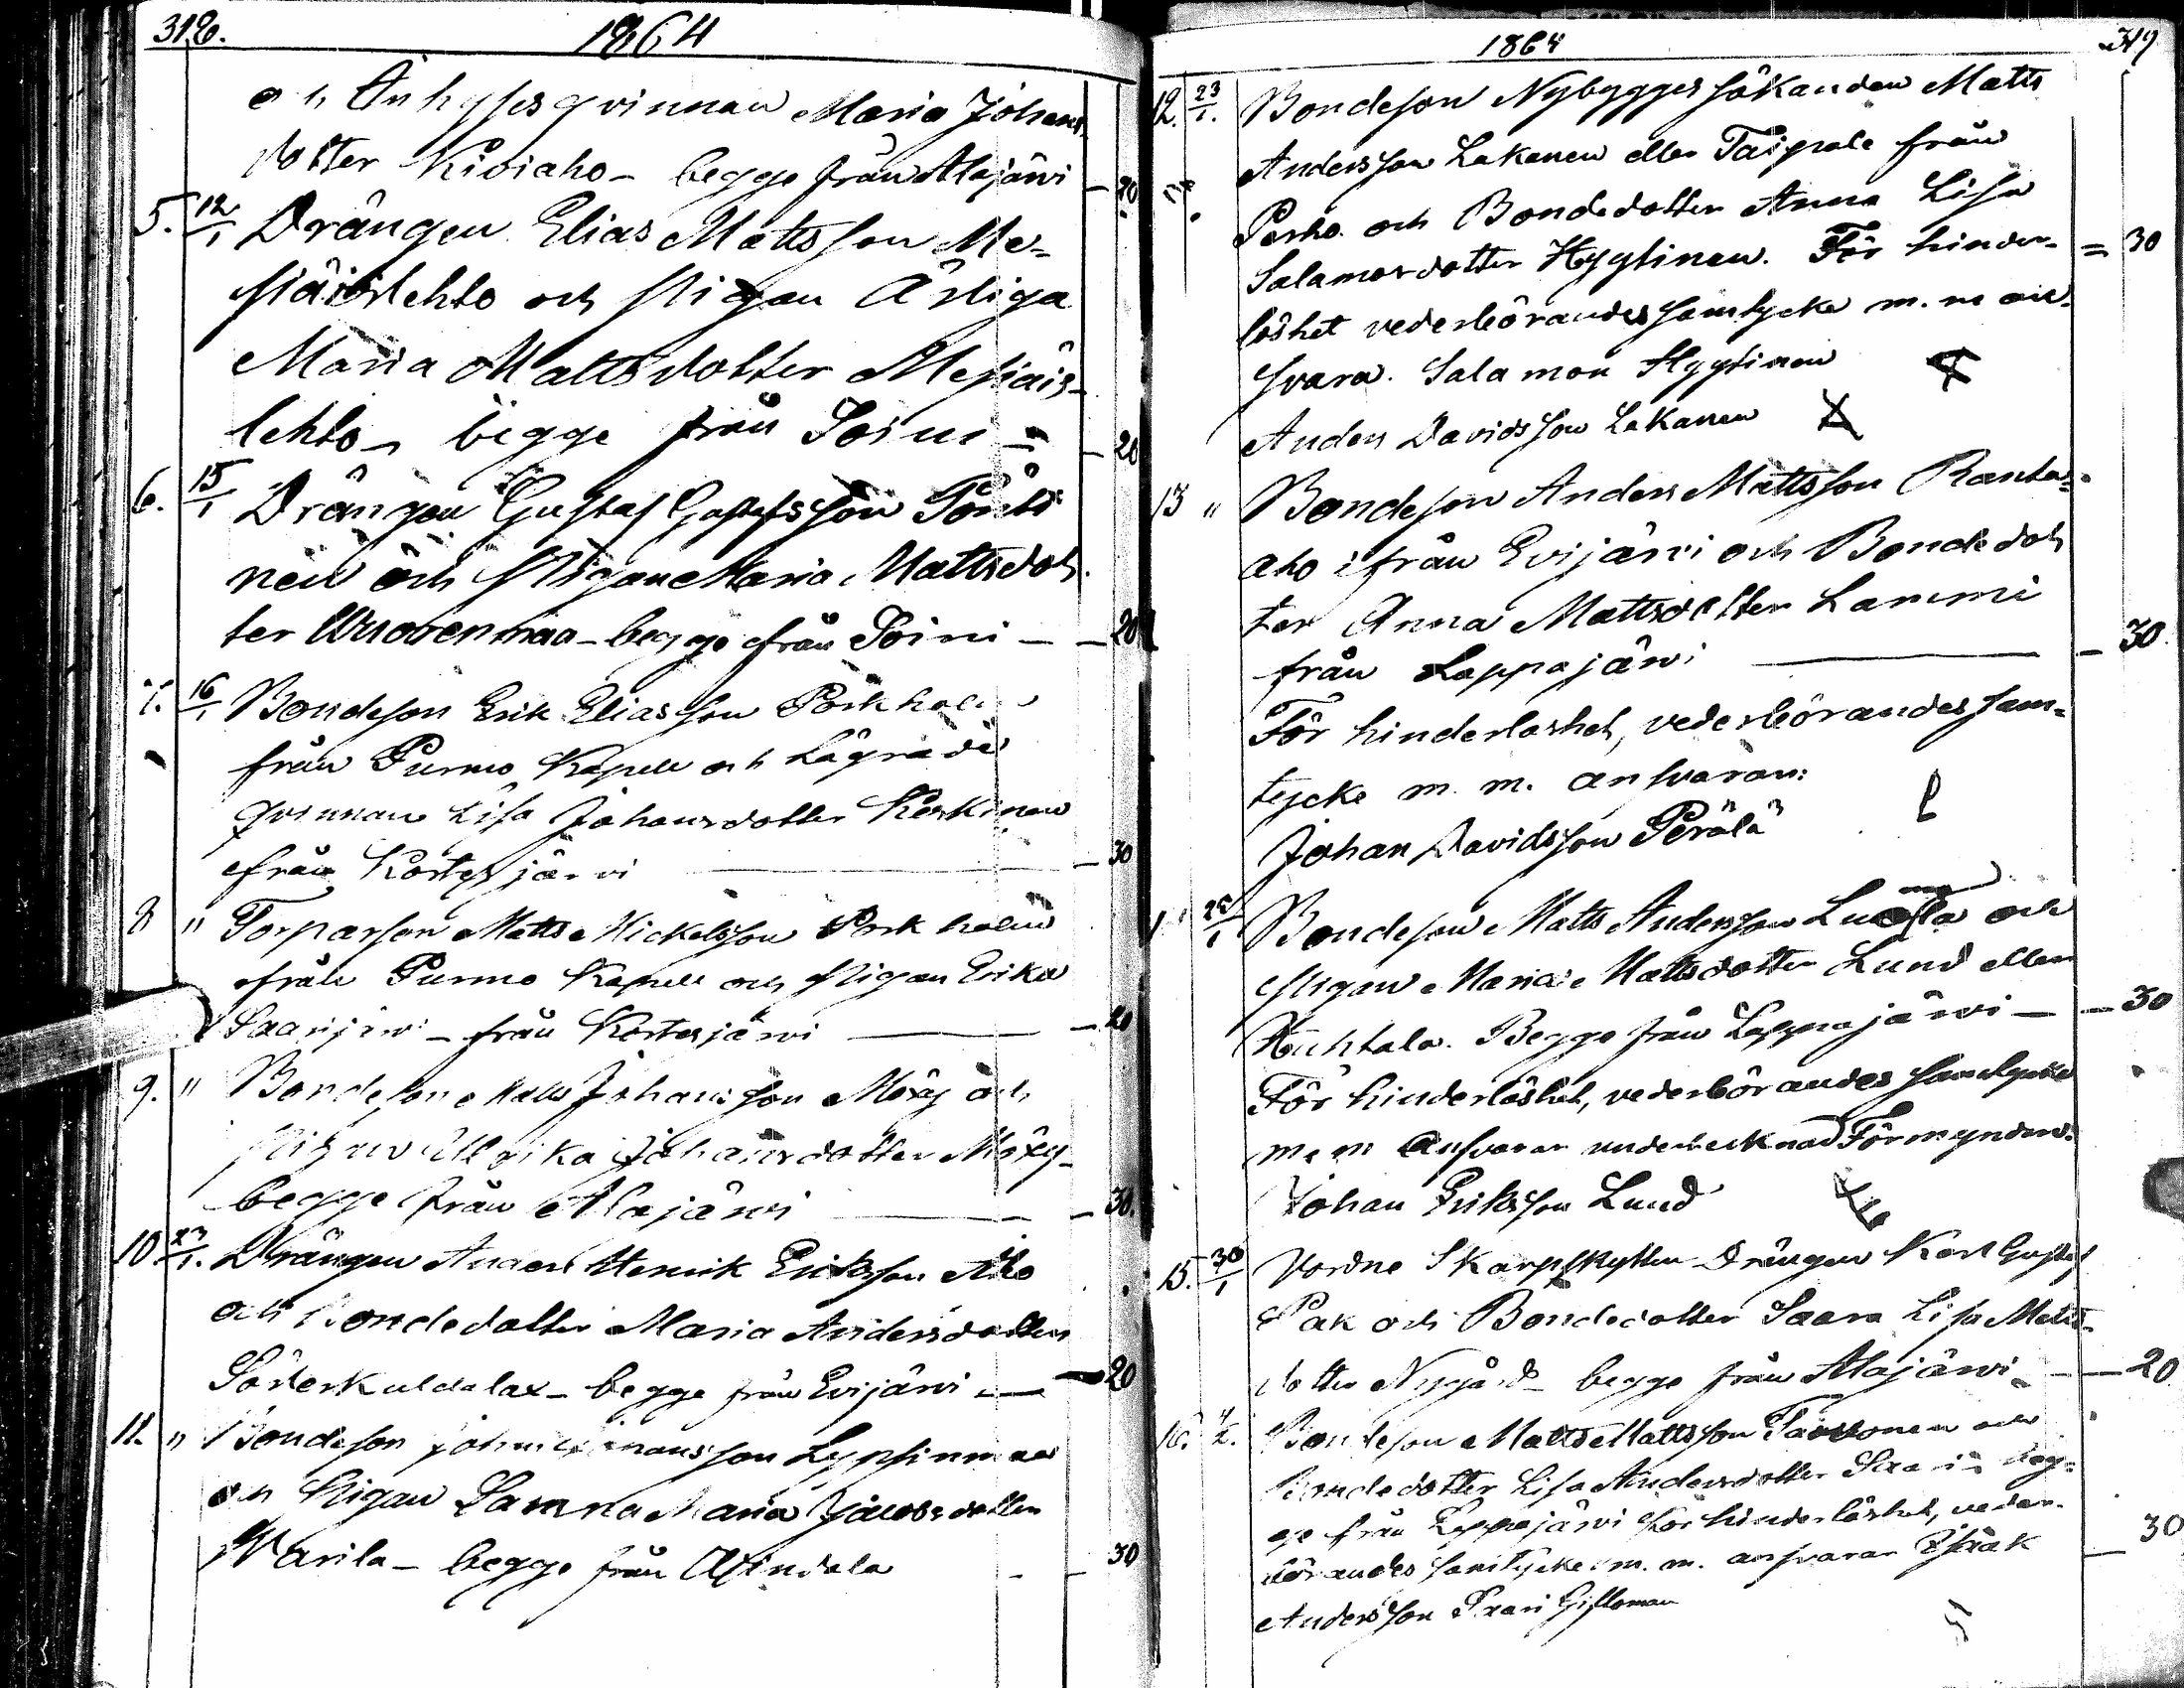 318.
1864
och Inhyses qvinnan Maria Johans
dotter Kiviaho - begge från Alajärvi - 20
5. 12/1 Drängen Elias Mattsson Me=
siäislehto och Pigan Ärliga
Maria Mattsdotter Mesiäis-
lehto - begge från Soini - 20
6. 15/1 Drängen Gustaf Gustafsson Pönti
nen och Pigan Maria Mattsdot
ter Wuorenmaa - begge från Soini - - 20
7. 16/1 Bondeson Erik Eliasson Porkholm
från Purmo Kapell och Lägrade
qvinnan Lisa Johansdotter Keskinen
från Kortesjärvi - 30
8 " Torparson Matts Mickelsson Porkholm
från Purmo Kapell och Pigan Erika
Saarijärvi - från Kortesjärvi - 20
9. " Bondeson Matts Johansson Möxy och
Pigan Ulrika Johansdotter Möxy -
begge från Alajärvi - 30.
10 23/1. Drängen Anders Henrik Eriksson Aho
och Bondedotter Maria Andersdotter
Söderkuldalax - begge från Evijärvi - 20
11. " Bondeson Johan Lypsinmaa
och Pigan Sanna Maria Jacobsdotter
Warila - begge från Windala - 30
1864
319
12. 23/1. Bondeson Nybyggessökanden Matts
Andersson Lakanen eller Taipale från
Perho och Bondedotter Anna Lisa
Salamonsdotter Hyytinen. För hinder- = 30
löshet vederbörandes samtycke m. m an-
svara. Salamon Hyytinen
Anders Davidsson Lakanen
13 " Bondeson Anders Mattsson Ranta=
aho ifrån Evijärvi och Bondedot
ter Anna Mattsdotter Lammi
från Lappajärvi - 30.
För hinderlöshet, vederbörandes sam=
tycke m. m. ansvaran:
Johan Davidsson Perälä
Bondeson Matts Andersson och
Pigan Maria Mattsdotter Lund eller
Huhtala. Begge från Lappajärvi - - 30
För hinderlöshet, vederbörandes samtycke
m. m ansvarar undertecknad Förmyndare
Johan Eriksson Lund
15. 30/1 Vordne Skarpskytten Drängen Karl Gustaf
Pak och Bondedotter Saara Lisa Matts-
dotter Nygård - begge från Alajärvi - 20
16. 4/2. Bondeson Matts Mattsson och
Bondedotter Lisa Andersdotter Saari beg=
ge från Lappajärvi För hinderlöshet, veder-
börandes samtycke m. m. ansvarar Isaak - 30
Andersson Saari Giftoman